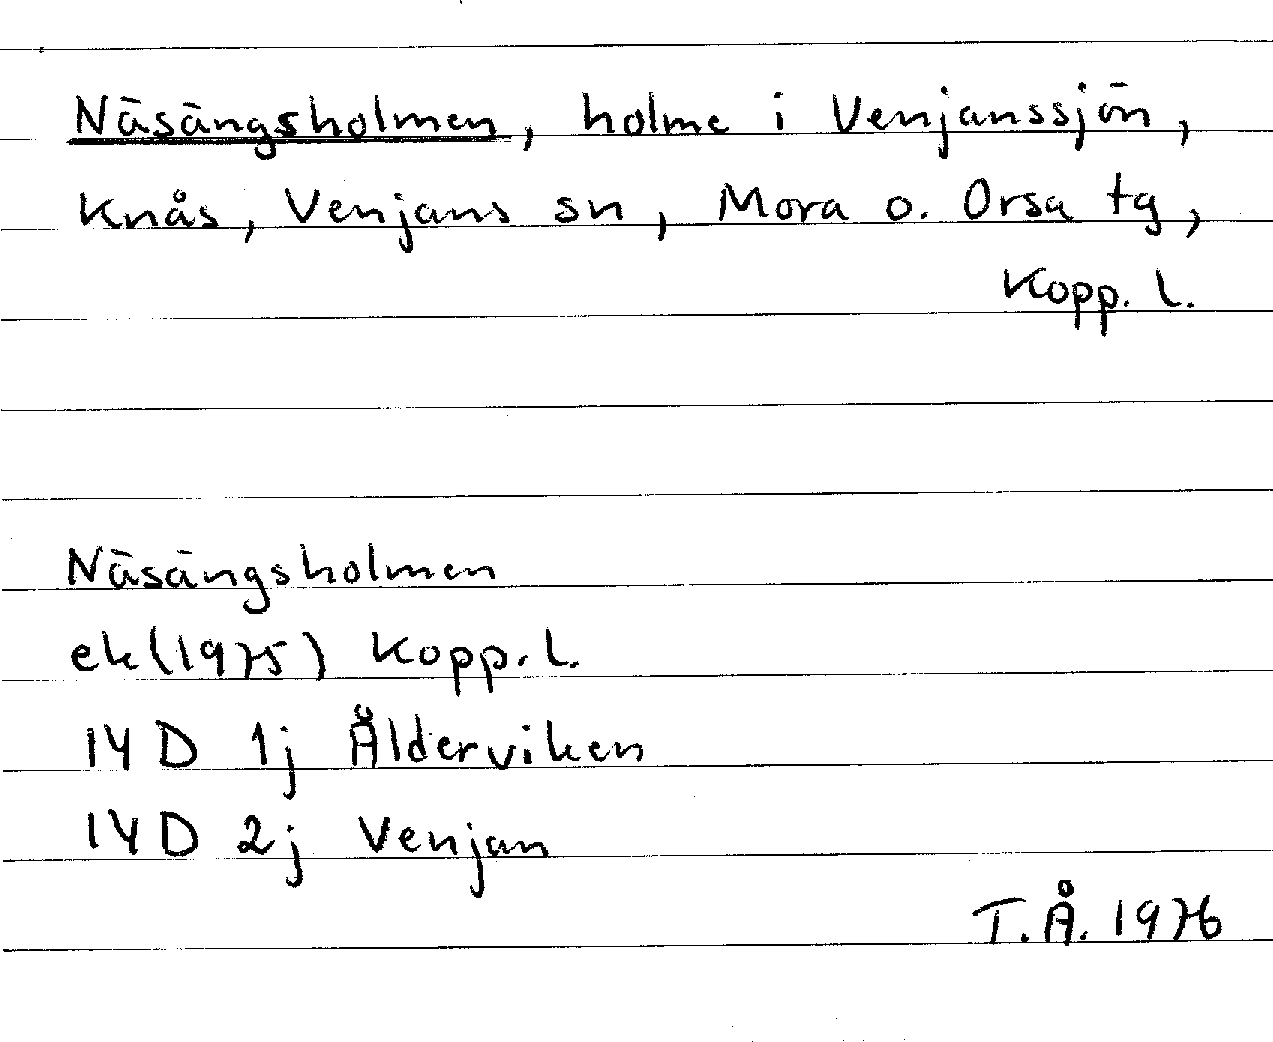 Näsängsholmen, holme i Venjanssjön,
Knås, Venjans sn, Mora o. Orsa tg,
Kopp. l.
Näsängsholmen
ek(1975) Kopp. l.
14 D 1j Ålderviken
14 D 2j Venjan
T.Å. 1976